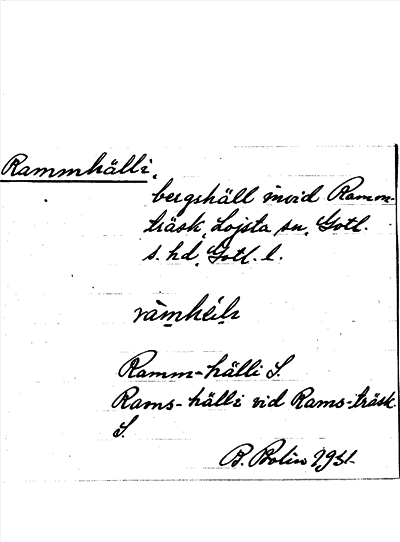 Rammhälli,
bergshäll invid Ramm-
träsk, Lojsta sn, Gotl.
s. hd, Gotl. l.
Ramm-hälli S.
Rams-hälli vid Rams-träsk
S.
B. Bolin 1931